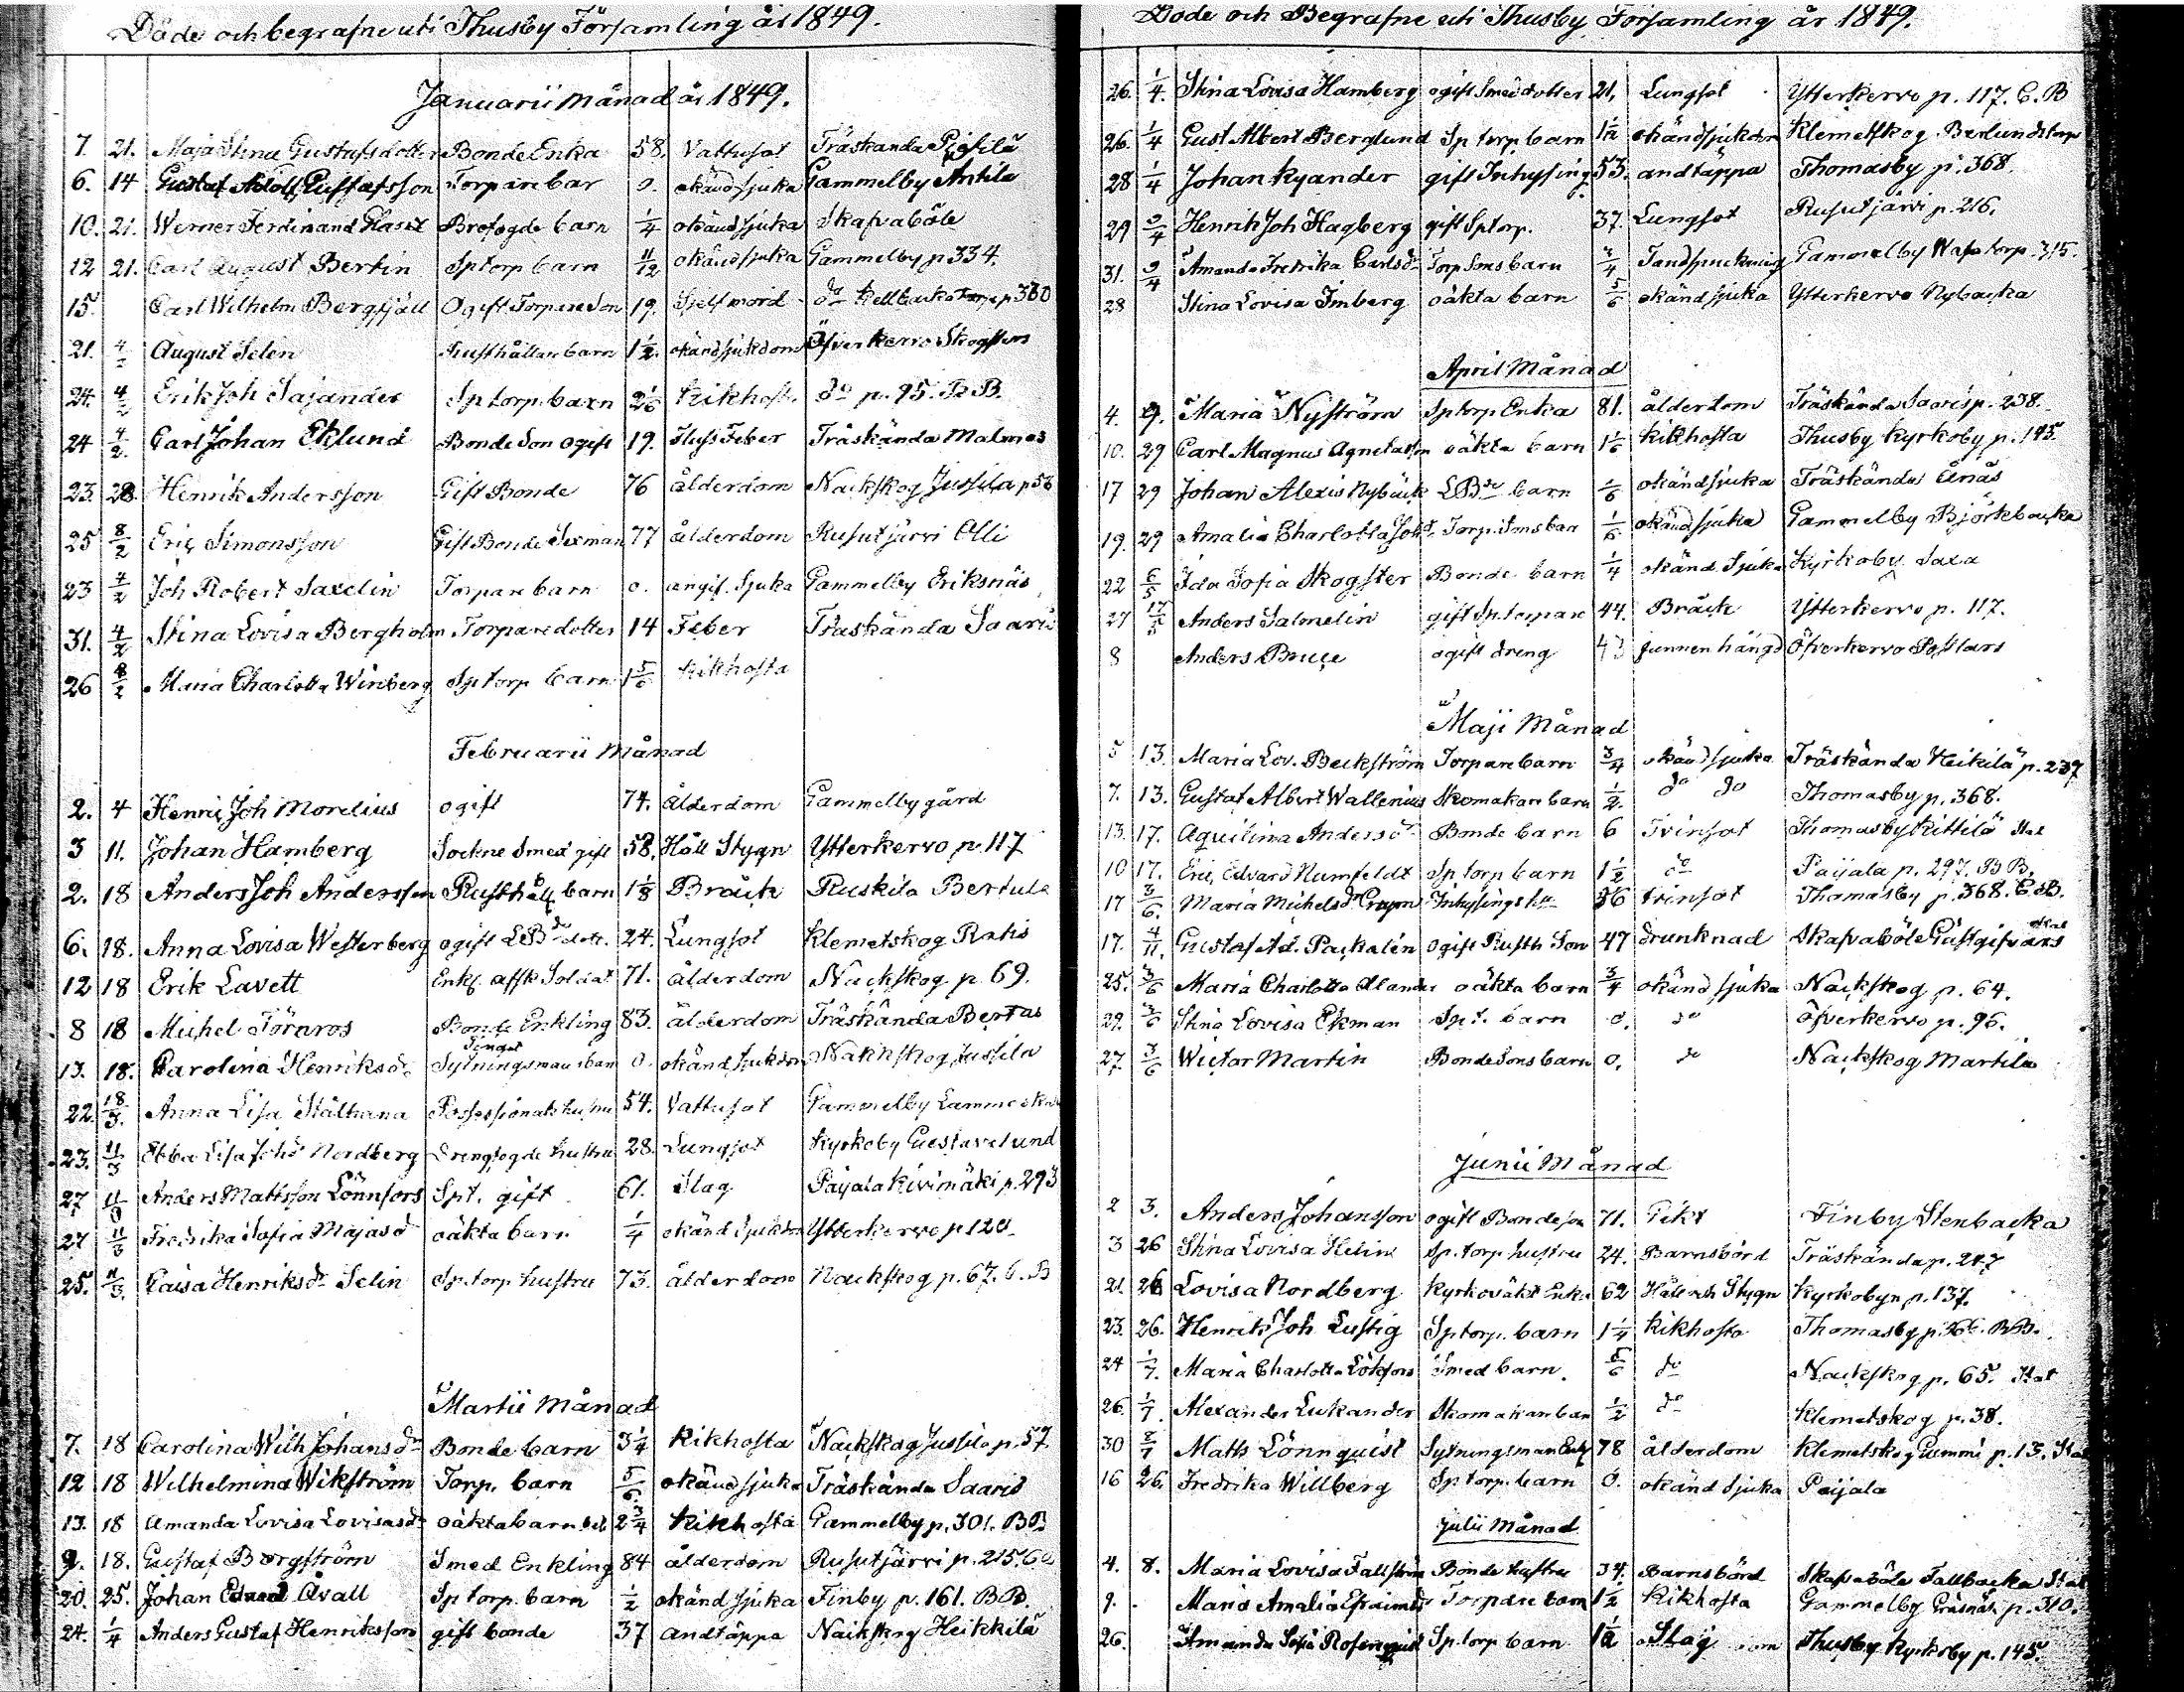 Döde och begrafne uti Thusby Församling år 1849.
Januarii Månad år 1849.
7. 21. Maja Stina Gustafsdotter Bonde Enka 58. Vattusot Träskända Pigfilä
6. 14 Gustaf Adolf Gustafsson Torpare bar 0. okänd sjuka Gammelby Anttila
10. 21. Werner Ferdinand Brofogde barn 1/4 okänd sjuka Skafvaböle
12 21. Carl August Bertin Sp torp barn 11/12 okänd sjuka Gammelby p 334.
15. Carl Wilhelm Bergfjäll Ogift Torpare Son 19. Sjelfmord do Kellbacka torp p 360
21. 4/2 August Selen Rusthållare barn 1 1/2. okänd sjukdom Öfverkervo Skogsters
24. 4/2 Erik Joh Sajander Sp torp. barn 2 1/6 Kikhost. do p. 95. B B.
24 4/2. Carl Johan Eklund Bonde Son ogift 19. Fluss Feber Träskända Malmos
23. 28. Henrik Andersson Gift Bonde 76 ålderdom Nackskog Jussila p 56
25 8/2 Eric Simonsson Gift Bonde Sexman 77 ålderdom Rusutjärvi Olli
23 4/2 Joh Robert Saxelin Torpare barn 0. angif. Sjuka Gammelby Eriksnäs
31. 4/2 Stina Lovisa Bergholm Torpare dotter 14 Feber Träskända Saaris
26 8/2 Maria Charlotta Winberg Sp torp barn 1 5/6 Kikhosta
Februarii Månad
2. 4 Henric Joh Morelius ogift 74. ålderdom Gammelby gård
3 11. Johan Hamberg Sockne Smed gift 58. Håll Stygn Ytterkervo p. 117
2. 18 Anders Joh Andersson Rusthåll barn 1 1/8 Bräck Ruskila Bertula
6. 18. Anna Lovisa Westerberg ogift LBde dott. 24. Lungsot Klemetskog Ratis
12 18 Erik Lavett Enkl affsk Soldat 71. ålderdom Nackskog p. 69.
8 18 Michel Törnros Bonde Enkling 83. ålderdom Träskända Bertas
13. 18. Carolina Henriksdr Sytningsmans barn 0. okänd sjukdom Nackskog Jussila
22. 18/3. Anna Lisa Stålhana Possessionats hustru 54. Vattusot Gammelby
23. 11/3 Ebba Lisa Johsdr Nordberg Drengfogde hustru 28. Lungsot Kyrkoby Gustavelund
27 11/3 Anders Mattsson Lönnfors Spt. gift 61. Slag Paijala Kivimäki p. 293
27 11/3 Fredrika Sofia Majasdr oäkta barn 1/4 okänd sjukdom Ytterkervo p 120
25. 11/3. Caisa Henriksdr Selin Sp. torp hustru 73. ålderdom Nackskog p. 67. C. B
Martii Månad
7. 18 Carolina Wilh Johansdr Bonde barn 3 1/4 Kikhosta Nackskog Jussila p. 57
12 18 Wilhelmina Wikström Torp. barn 5/6 okänd sjuka Träskända Saaris
13. 18 Amanda Lovisa Lovisasdr oäkta barn 2 3/4 Kikhosta Gammelby p. 301. BB
9. 18. Gustaf Bergström Smed Enkling 84 ålderdom Rusutjärvi p. 215.
20. 25. Johan Edvard Åvall Sp torp. barn 1/2 okänd sjuka Finby p. 161. BB.
24. 1/4 Anders Gustaf Henriksson gift bonde 37 andtäppa Nackskog Heikkilä
Döde och Begrafne uti Thusby Församling år 1849.
26. 1/4. Stina Lovisa Hamberg ogift Smeddotter 21, Lungsot Ytterkervo p. 117. C. B
26. 1/4 Gust Albert Berglund Sp torp barn 1 1/2 okänd sjukdom Klemetskog
28 1/4 Johan Kyander gift Inhysing 53. andtäppa Thomasby p. 368.
29 9/4 Henrik Joh Hagberg gift Sp torp. 37. Lungsot Rusutjärvi p. 216.
31. 9/4 Amanda Fredrika Carlsdr Torp Sons barn 3/4 Tandsprickning Gammelby torp. 315.
28 Stina Lovisa Imberg oäkta barn 5/6 okänd sjuka Ytterkervo Nybacka
April Månad
4. 9. Maria Nyström Sp torp Enka 81. ålderdom Träskända Saaris p. 238.
10. 29 Carl Magnus Agnetasson oäkta barn 1 1/6 Kikhosta Thusby Kyrkoby p. 145.
17 29 Johan Alexis Nybäck LBde barn 1/6 okänd sjuka Träskända Ånäs
19. 29 Amalia Charlotta Johdr Torp. Sons bar 1/6 okänd sjuka Gammelby Björkbacka
22 6/5 Ida Sofia Skogster Bonde barn 1/4 okänd Sjuka Kyrkoby Saxa
27 17/5 Anders Salmelin gift Sp. torpare 44. Bräck Ytterkervo p. 117.
8 Anders Bruce ogift dreng 43 funnen hängd Öfverkervo
Maji Månad
5 13. Maria Lov. Beckström Torpare barn 3/4 okänd sjuka Träskända Heikilä p. 237
7. 13. Gustaf Albert Wallenius Skomakare barn 1/2. do do Thomasby p. 368.
13. 17. Aquilina Andersdr Bonde barn 6 Tvinsot Thomasby Kittilä
10 17. Eric Edvard Numfeldt Sp torp barn 1 1/2 do Paijala p. 297. BB.
17 3/6. Maria Michelsdr Inhysings hu 36 tvinsot Thomasby p. 368. C.B.
17. 4/11. Gustaf Ad. Packalén ogift Rusth Son 47 drunknad Skafvaböle Gästgifvars
25. 3/6 Maria Charlotta Ålander oäkta barn 3/4 okänd sjuka Nackskog p. 64.
29. 3/6 Stina Lovisa Ekman Sp. t. barn 0. do Öfverkervo p. 96.
27. 3/6 Wictor Martin Bonde Sons barn 0. do Nackskog Martila
Junii Månad
2 3. Anders Johansson ogift Bonde son 71. Gikt Finby Stenbacka
3 26 Stina Lovisa Helin Sp. torp hustru 24. Barnsbörd Träskända p. 247
21. 26 Lovisa Nordberg Kyrkoväkt Enka 62 Håll och Stygn Kyrkobyn p. 137.
23. 26. Henrik Joh Lustig Sp torp. barn 1 1/4 Kikhosta Thomasby p. 366. BB.
24 1/7. Maria Charlotta Lökfors Smed barn. 5/6 do Nackskog p. 65.
26. 1/7. Alexander Lukander Skomakare bar 1/2 do Klemetskog p. 38.
30 8/7 Matts Lönnquist Sytningsman Enkl 78 ålderdom Klemetskog Gammi p. 13.
16 26. Fredrika Willberg Sp. torp. barn 0. okänd sjuka Paijala
Julii Månad
4. 8. Maria Lovisa Fallström Bonde hustru 34. Barnsbörd Skafvaböle Fallbacka
9. Maria Amalia Efraimsdr Torpare barn 1 1/2 Kikhosta Gammelby Gräsnäs p. 310.
26. Amanda Sofia Rosenquist Sp torp barn 1 1/2 Slag Thusby Kyrkoby p. 145.